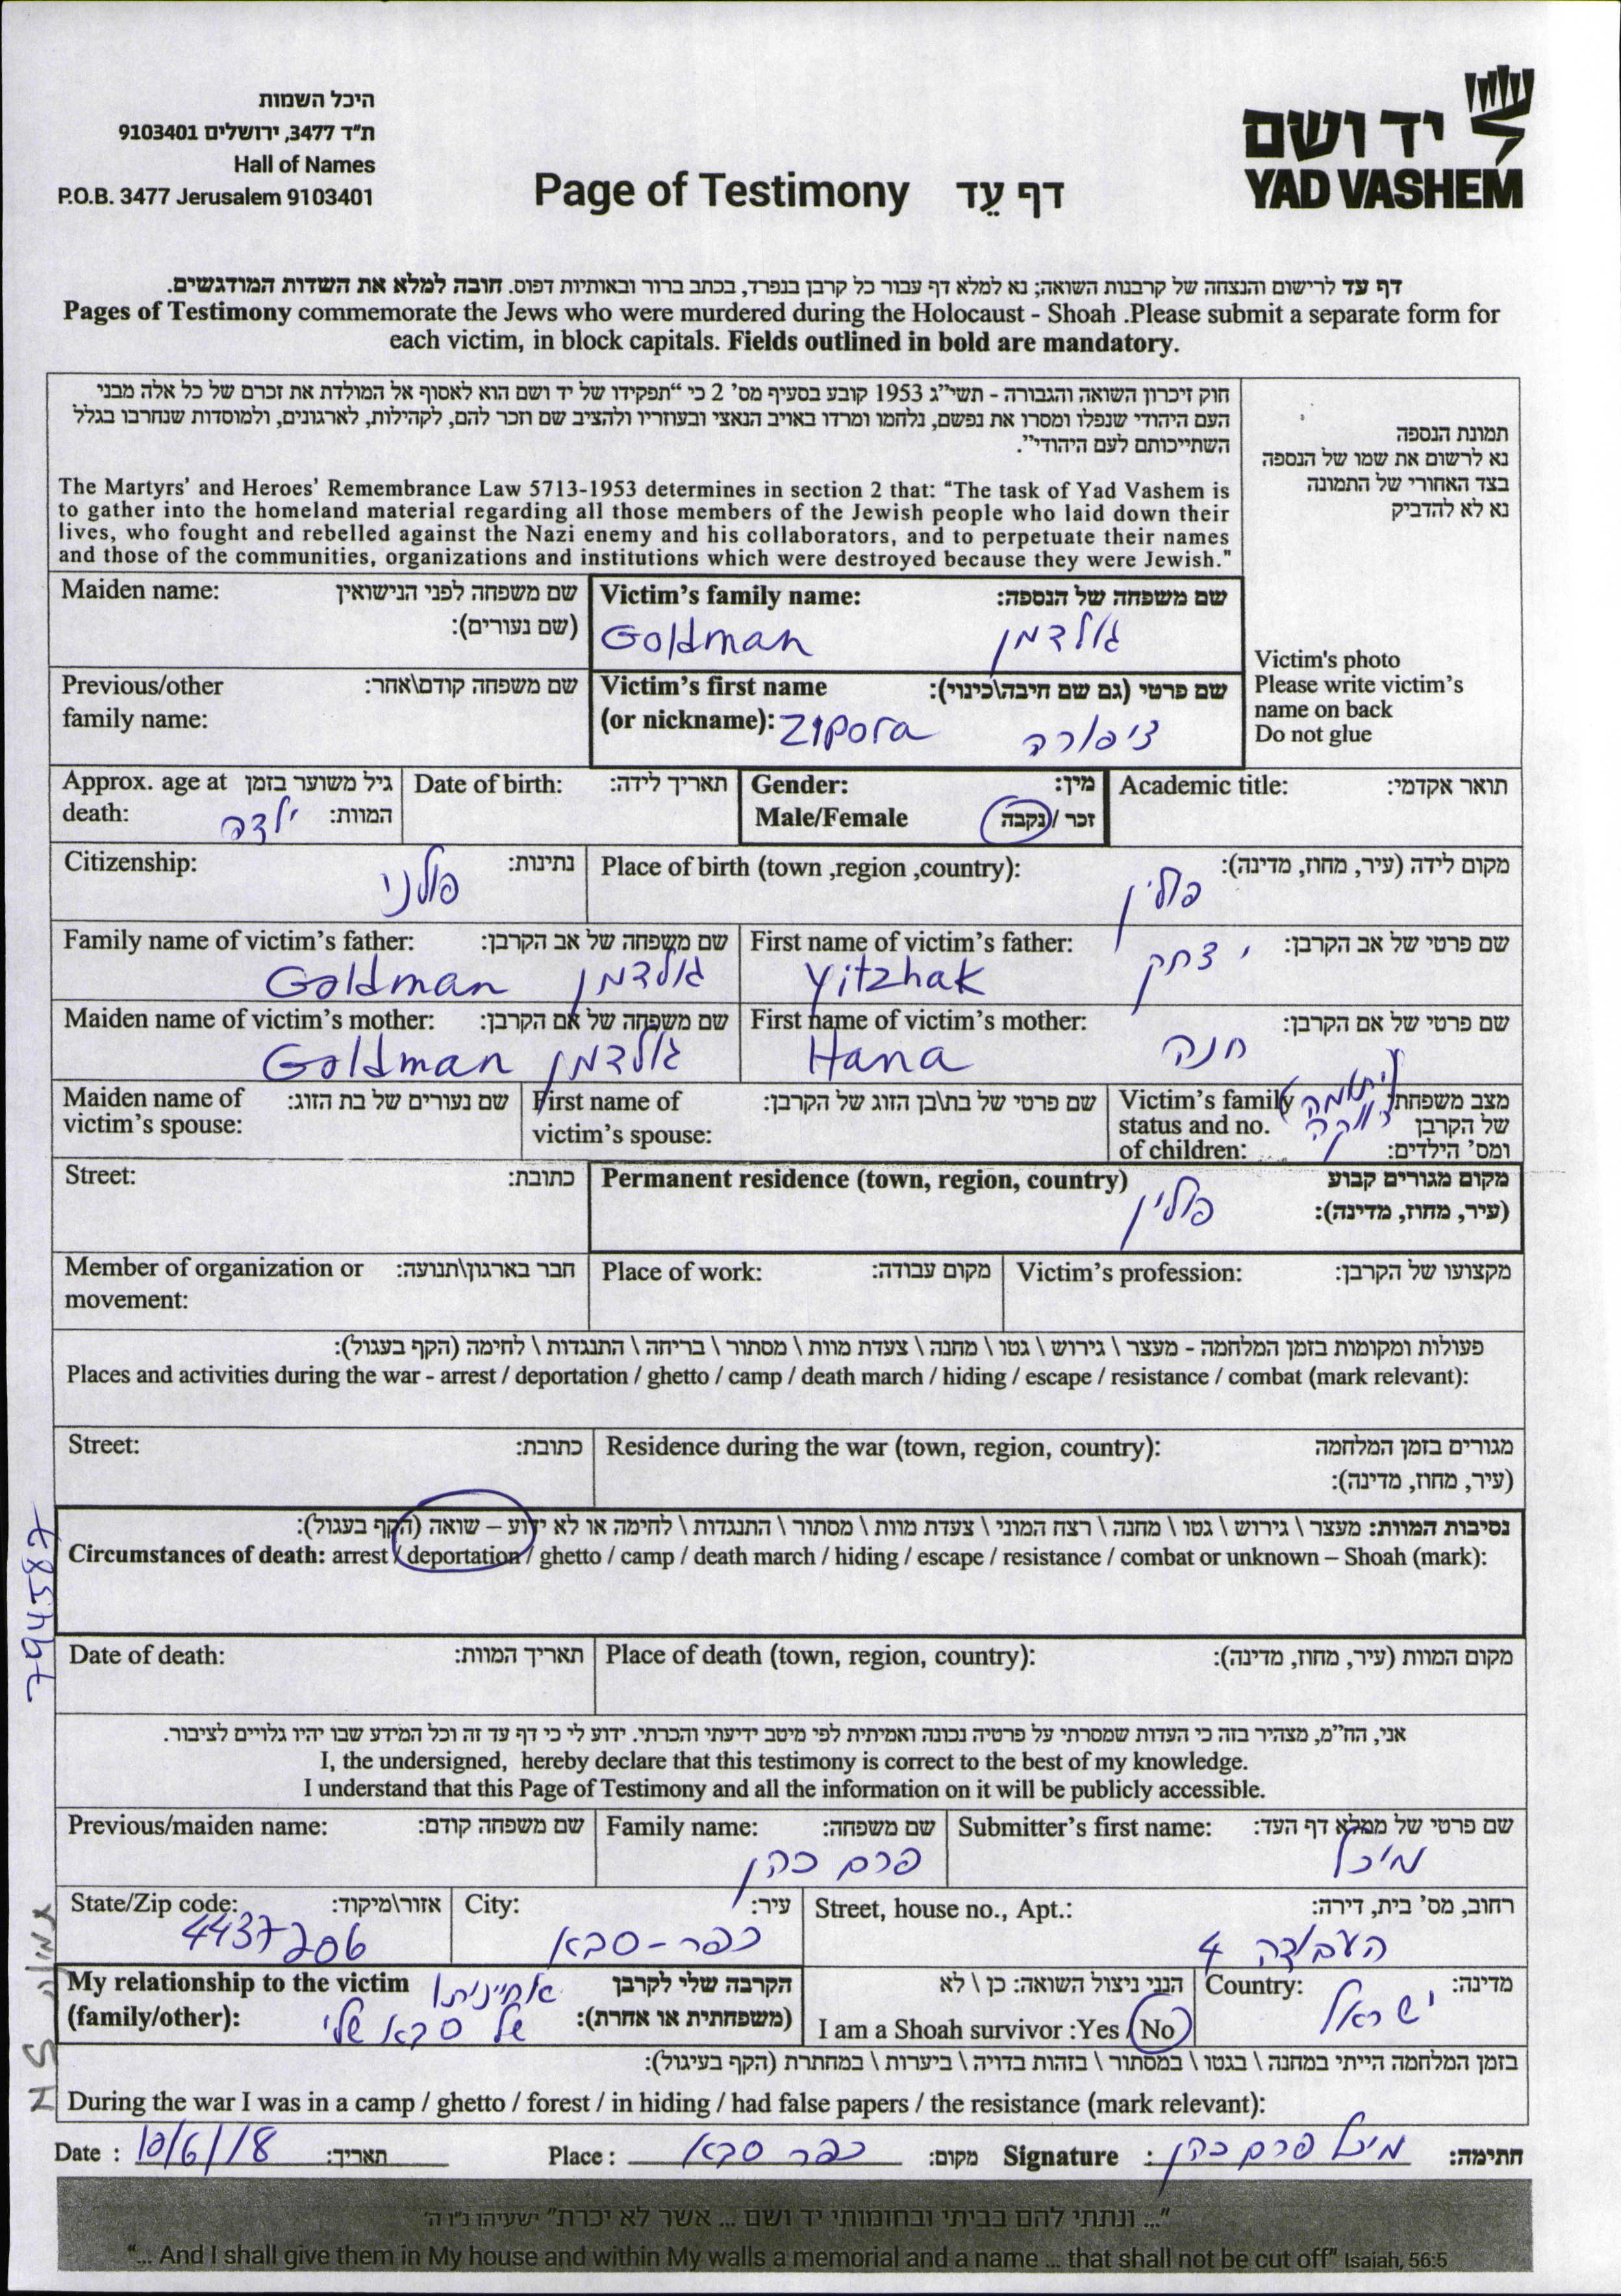 היכל השמות
ת"ד 3477, ירושלים 9103401
Hall of Names
P.O.B. 3477 Jerusalem 9103401
Page of Testimony דף עֵד
יד ושם
YAD VASHEM
דף עד לרישום והנצחה של קרבנות השואה; נא למלא דף עבור כל קרבן בנפרד, בכתב ברור ובאותיות דפוס. חובה למלא את השדות המודגשים.
Pages of Testimony commemorate the Jews who were murdered during the Holocaust - Shoah .Please submit a separate form for
each victim, in block capitals. Fields outlined in bold are mandatory.
חוק זיכרון השואה והגבורה - תשי"ג 1953 קובע בסעיף מס' 2 כי "תפקידו של יד ושם הוא לאסוף אל המולדת את זכרם של כל אלה מבני
העם היהודי שנפלו ומסרו את נפשם, נלחמו ומרדו באויב הנאצי ובעוזריו ולהציב שם וזכר להם, לקהילות, לארגונים, ולמוסדות שנחרבו בגלל
השתייכותם לעם היהודי".
The Martyrs' and Heroes' Remembrance Law 5713-1953 determines in section 2 that: "The task of Yad Vashem is
to gather into the homeland material regarding all those members of the Jewish people who laid down their
lives, who fought and rebelled against the Nazi enemy and his collaborators, and to perpetuate their names
and those of the communities, organizations and institutions which were destroyed because they were Jewish."
תמונת הנספה
נא לרשום את שמו של הנספה
בצד האחורי של התמונה
נא לא להדביק
Victim's photo
Please write victim's
name on back
Do not glue
Maiden name: שם משפחה לפני הנישואין
(שם נעורים):
Victim's family name: שם משפחה של הנספה:
Goldman גולדמן
Previous/other שם משפחה קודם\אחר:
family name:
Victim's first name שם פרטי (גם שם חיבה\כינוי):
(or nickname): Zipora ציפורה
Approx. age at גיל משוער בזמן
death: המוות: ילדה
Date of birth: תאריך לידה:
Gender: מין:
Male/Female זכר / נקבה
Academic title: תואר אקדמי:
Citizenship: נתינות:
פולני
Place of birth (town ,region ,country): מקום לידה (עיר, מחוז, מדינה):
פולין
Family name of victim's father: שם משפחה של אב הקרבן:
Goldman גולדמן
First name of victim's father: שם פרטי של אב הקרבן:
Yitzhak יצחק
Maiden name of victim's mother: שם משפחה של אם הקרבן:
Goldman גולדמן
First name of victim's mother: שם פרטי של אם הקרבן:
Hana חנה
Maiden name of שם נעורים של בת הזוג:
victim's spouse:
First name of שם פרטי של בת\בן הזוג של הקרבן:
victim's spouse:
Victim's family מצב משפחתי
status and no. של הקרבן
of children: ומס' הילדים:
Street: כתובת:
Permanent residence (town, region, country) מקום מגורים קבוע
פולין (עיר, מחוז, מדינה):
Member of organization or חבר בארגון\תנועה:
movement:
Place of work: מקום עבודה:
Victim's profession: מקצועו של הקרבן:
פעולות ומקומות בזמן המלחמה - מעצר \ גירוש \ גטו \ מחנה \ צעדת מוות \ מסתור \ בריחה \ התנגדות \ לחימה (הקף בעגול):
Places and activities during the war - arrest / deportation / ghetto / camp / death march / hiding / escape / resistance / combat (mark relevant):
Street: כתובת:
Residence during the war (town, region, country): מגורים בזמן המלחמה
(עיר, מחוז, מדינה):
נסיבות המוות: מעצר \ גירוש \ גטו \ מחנה \ רצח המוני \ צעדת מוות \ מסתור \ התנגדות \ לחימה או לא ידוע – שואה (הקף בעגול):
Circumstances of death: arrest / deportation / ghetto / camp / death march / hiding / escape / resistance / combat or unknown – Shoah (mark):
Date of death: תאריך המוות:
Place of death (town, region, country): מקום המוות (עיר, מחוז, מדינה):
אני, הח"מ, מצהיר בזה כי העדות שמסרתי על פרטיה נכונה ואמיתית לפי מיטב ידיעתי והכרתי. ידוע לי כי דף עד זה וכל המידע שבו יהיו גלויים לציבור.
I, the undersigned, hereby declare that this testimony is correct to the best of my knowledge.
I understand that this Page of Testimony and all the information on it will be publicly accessible.
Previous/maiden name: שם משפחה קודם:
Family name: שם משפחה:
פרם כהן
Submitter's first name: שם פרטי של ממלא דף העד:
מיכל
State/Zip code: אזור\מיקוד:
4437206
City: עיר:
כפר-סבא
Street, house no., Apt.: רחוב, מס' בית, דירה:
העבודה 4
My relationship to the victim הקרבה שלי לקרבן
(family/other): (משפחתית או אחרת):
אחיינית
של סבא שלי
הנני ניצול השואה: כן \ לא
I am a Shoah survivor :Yes / No
Country: מדינה:
ישראל
בזמן המלחמה הייתי במחנה \ בגטו \ במסתור \ בזהות בדויה \ ביערות \ במחתרת (הקף בעיגול):
During the war I was in a camp / ghetto / forest / in hiding / had false papers / the resistance (mark relevant):
Date : 10/6/18 תאריך:
Place : כפר סבא מקום:
Signature : מיכל פרם כהן חתימה:
"... ונתתי להם בביתי ובחומותי יד ושם ... אשר לא יכרת" ישעיהו נ"ו ה'
"... And I shall give them in My house and within My walls a memorial and a name ... that shall not be cut off" Isaiah, 56:5